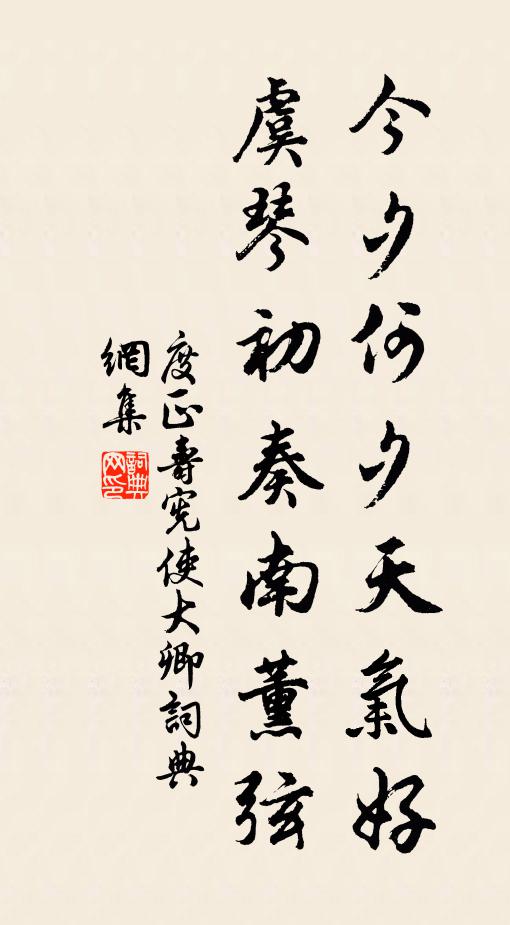 今夕何夕天氣好
虞琴初奏南薰弦
度正壽寃使大卿詞典
網集
詞典
网印